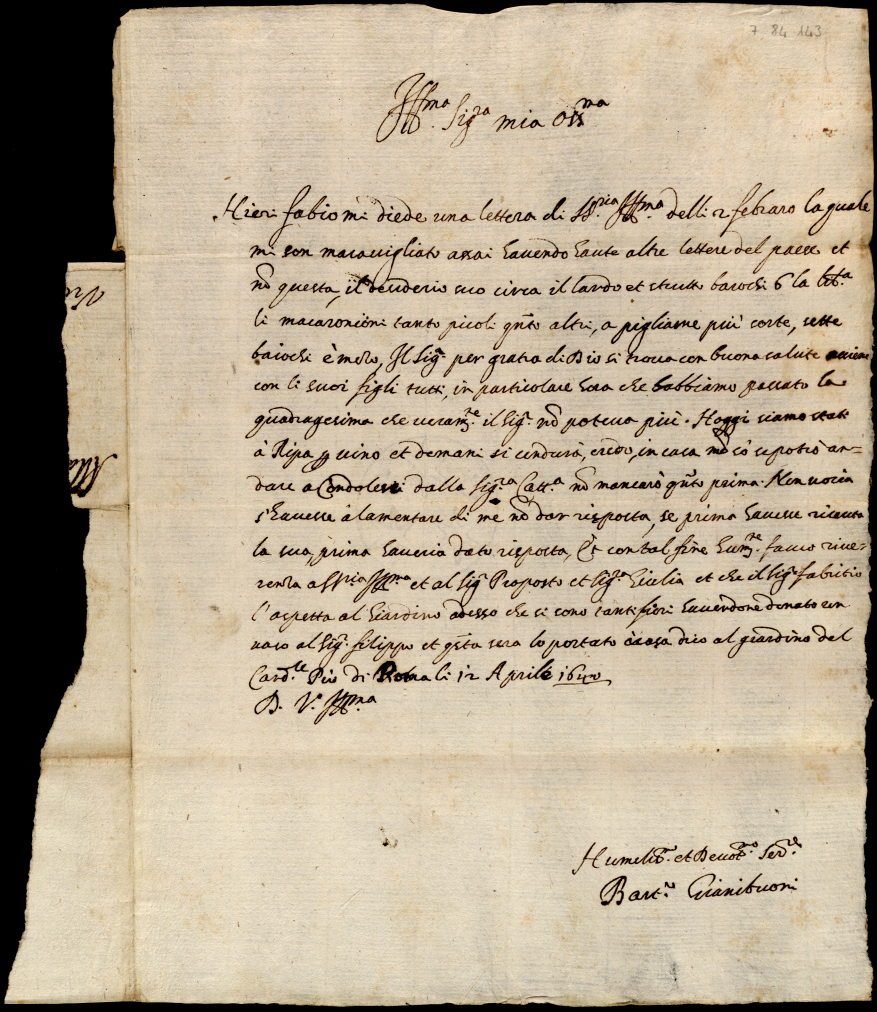 7 84 143
Ill.ma Sig.ra mia Oss.ma
Hieri fabio mi diede una lettera di VS.ria Ill.ma delli 2 febraro la quale
mi son maravigliato assai havendo haute altre lettere del paese et
nō questa, il deuderio suo circa il lardo et strutto baiochi 6 la lib.a
li macaroncini tanto picoli qnto altri, a pigliarne più corte, sette
baiochi è mezo, Il Sig.r per gratia di Dio si trova con buona salute
con li suoi figli tutti, in particolare hora che habbiamo passato la
quadragesima che veram.te il Sig.r nō poteva più. Hoggi siamo stati
à Ripa p vino et demani si condurà, credo, in casa se potrò an=
dare a dalla Sig.ra Catt.a nō mancarò qnto prima. Non voria
s'havesse à lamentare di me nō dar risposta, se prima havesse ricevuta
la sua, prima haveria dato risposta, Et con tal fine hum.te faccio rive=
renza a VS.ria Ill.ma et al Sig.r Proposto et Sig.ra Giulia et che il Sig.r fabritio
l'aspetta al Giardino adesso che si sono tanti fiori havendone donato un
vaso al Sig.r filippo et qsta sera lo portato à casa dico al giardino del
Card.le Pio di Roma li 12 Aprile 1640
D. V.S. Ill.ma
Humilis.o et Devot.mo Ser.re
Bart.o Gianibuoni